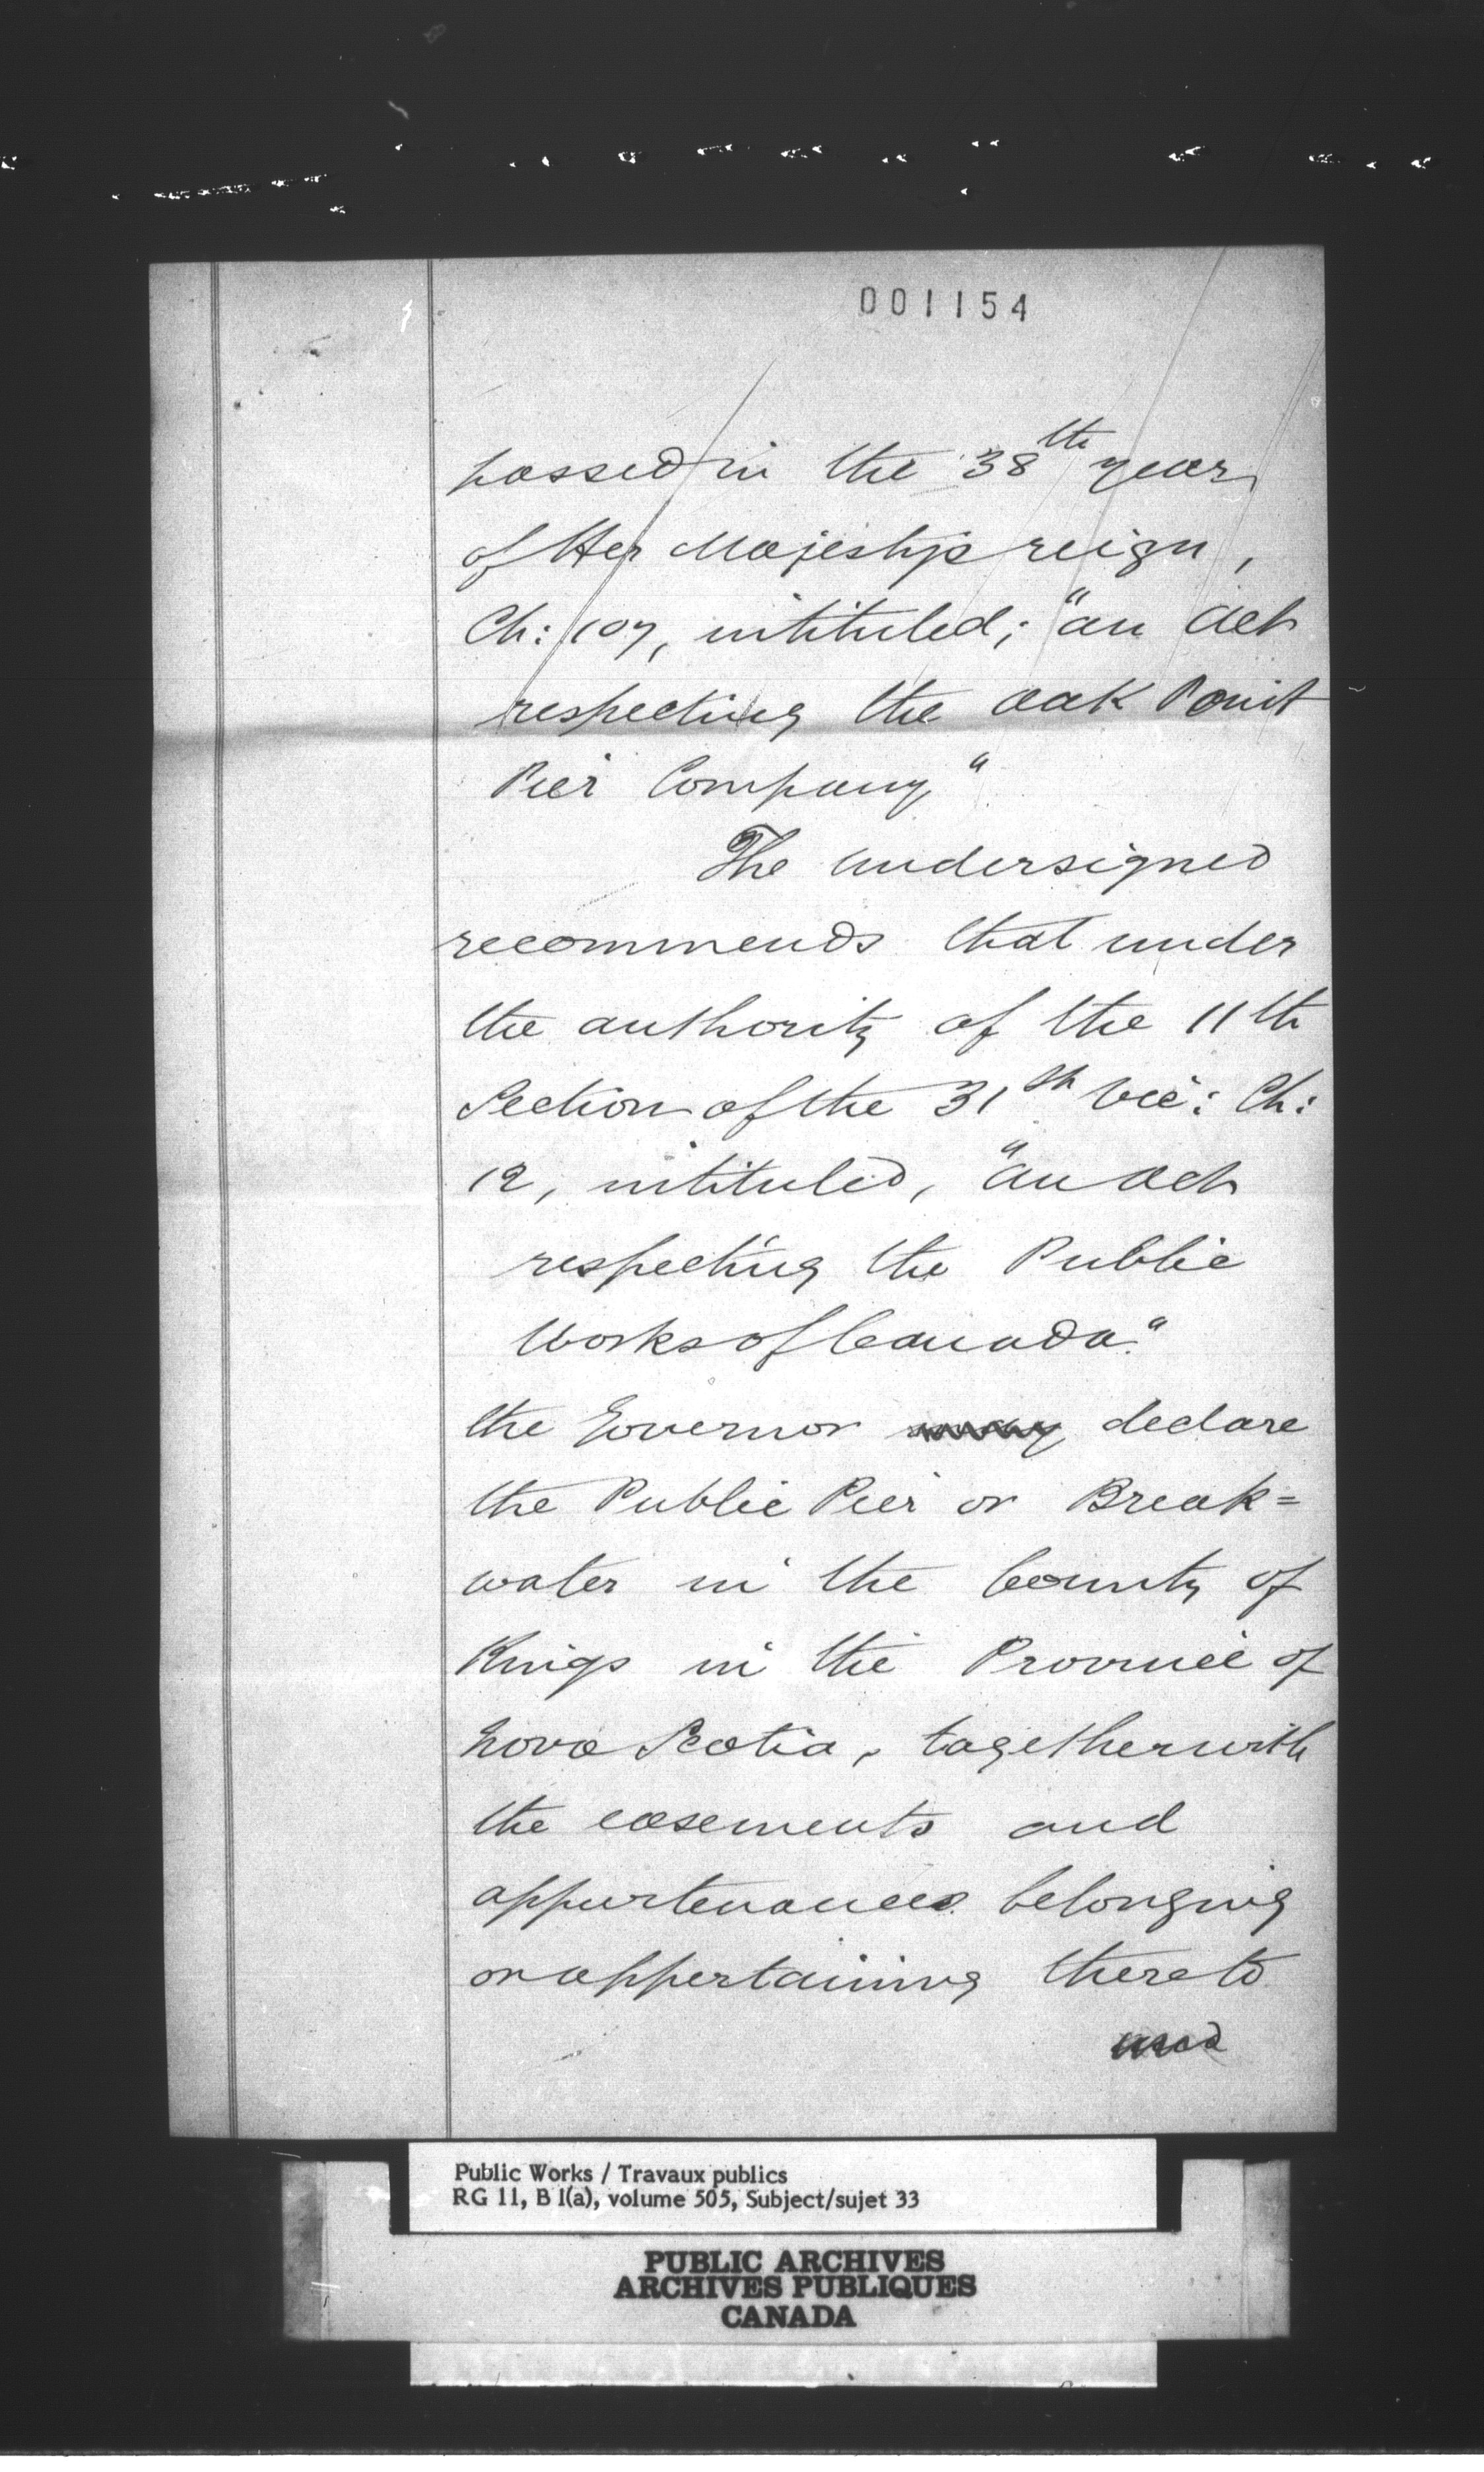 001154
passed in the 38th year
of Her Majestys reign,
Ch: 107, intituled; "an Act
respecting the Oak Point
Pier Company"
The undersigned
recommends that under
the authority of the 11th
Section of the 31st Vic: Ch:
12, intituled, "an Act
respecting the Public
Works of Canada."
the Governor may declare
the Public Pier or Break=
water in the County of
Kings in the Province of
Nova Scotia, together with
the easements and
appurtenances belonging
or appertaining thereto
Public Works / Travaux publics
RG 11, B 1(a), volume 505, Subject/sujet 33
PUBLIC ARCHIVES
ARCHIVES PUBLIQUES
CANADA